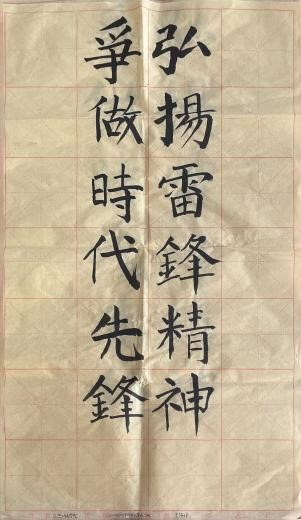 弘揚雷鋒精神
爭做時代先鋒